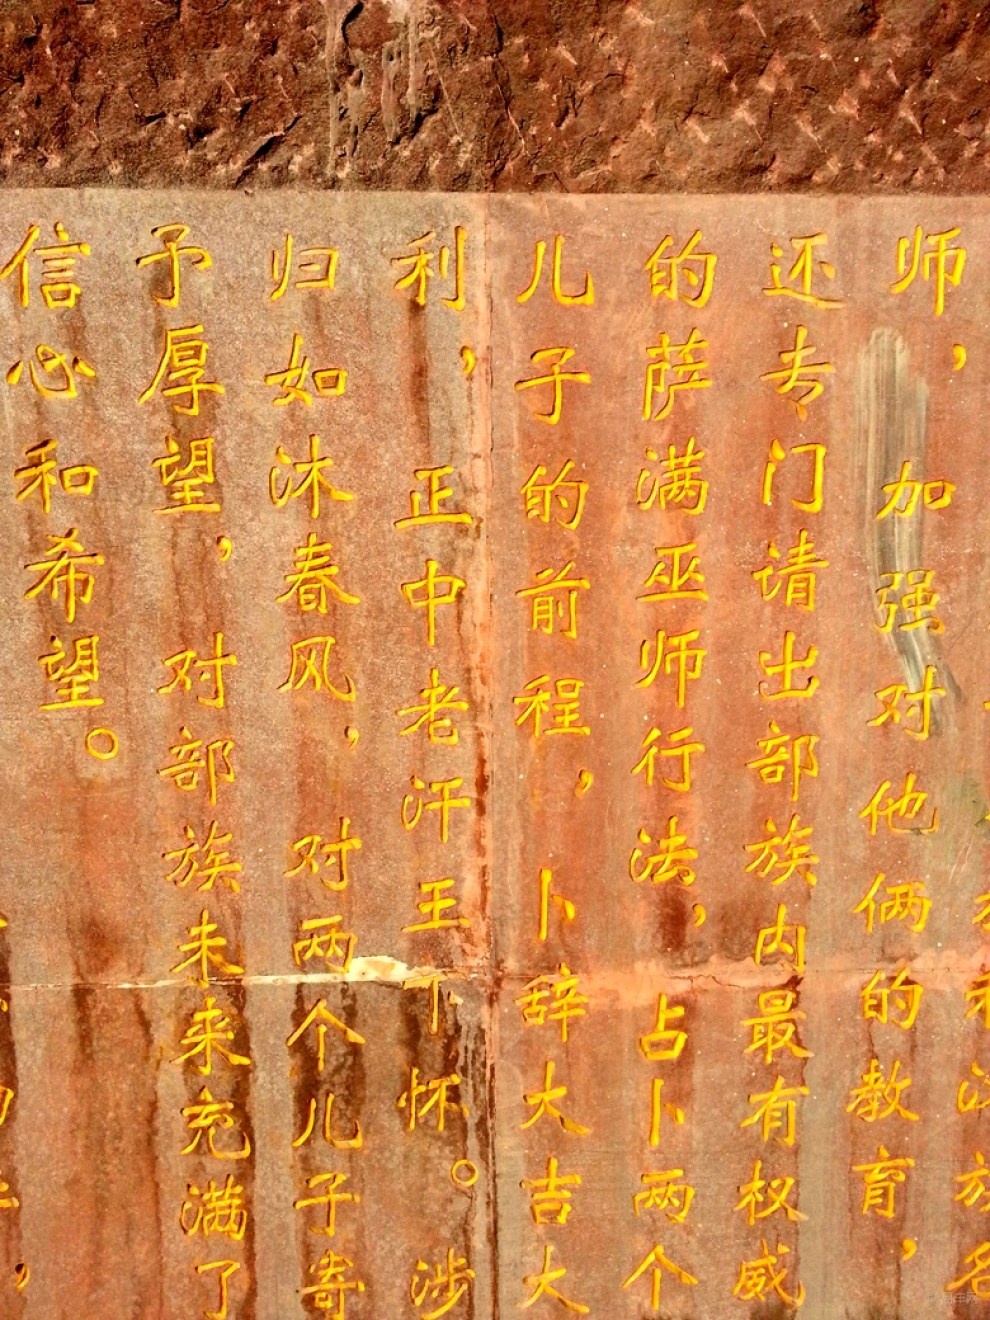 师，加强对他俩的教育，
还专门请出部族内最有权威
的萨满巫师行法，占卜两个
儿子的前程，卜辞大吉大
利，正中老汗王下怀。涉
归如沐春风，对两个儿子寄
予厚望，对部族未来充满了
信心和希望。